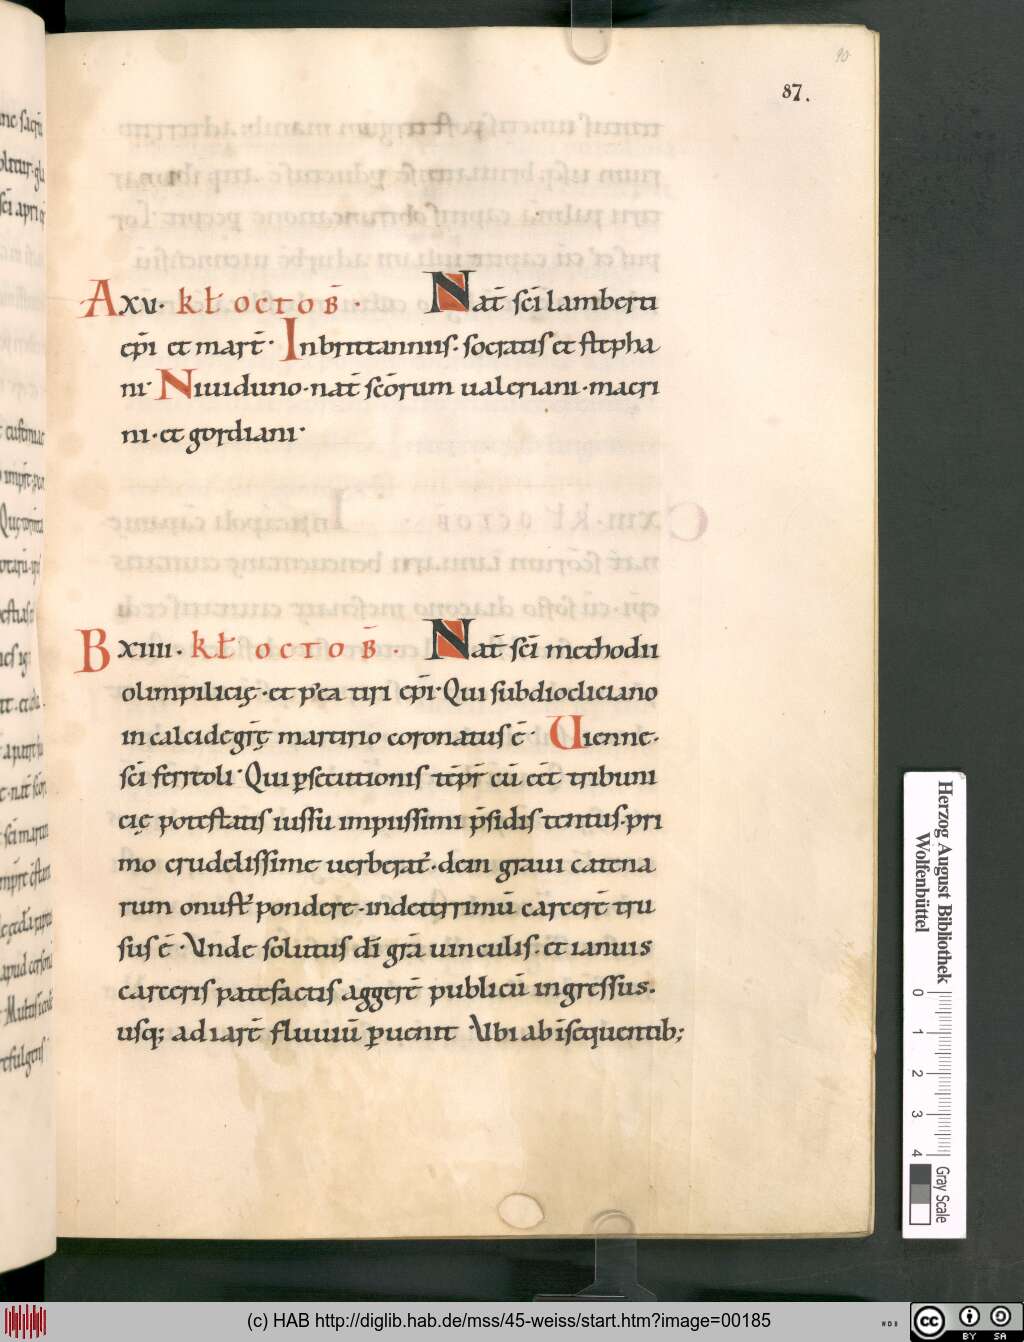 90
87.
A xv. kł octob̄. Nat̄ sc̄i lamberti
ep̄i et mart̄. In brittanniis. socratis et stepha
ni. Niuiduno. nat̄ sc̄orum ualeriani. macri
ni. et gordiani.
B xiiii. kł octob̄. Nat̄ sc̄i methodii
olimpilicię. et p'ea tiri ep̄i. Qui sub diocliciano
in calcide gr̄ę martirio coronatus ē. Uienne.
sc̄i ferreoli. Qui p̱secutionis tēpr̄ cū eēt tribuni
cię potestatis iussu impiissimi p̄sidis tentus. pri
mo crudelissime uerberat'. dein graui catena
rum onust' pondere. in deterrimū carcerē tru
sus ē. Unde solutus dī gr̄a uinculis. et ianuis
carceris patefactis aggerē publicū ingressus.
usq; ad iarē fluuiū p̱uenit. Ubi ab īsequentib;
Herzog August Bibliothek
Wolfenbüttel
0 1 2 3 4
Gray Scale
(c) HAB http://diglib.hab.de/mss/45-weiss/start.htm?image=00185
WDB
cc BY SA